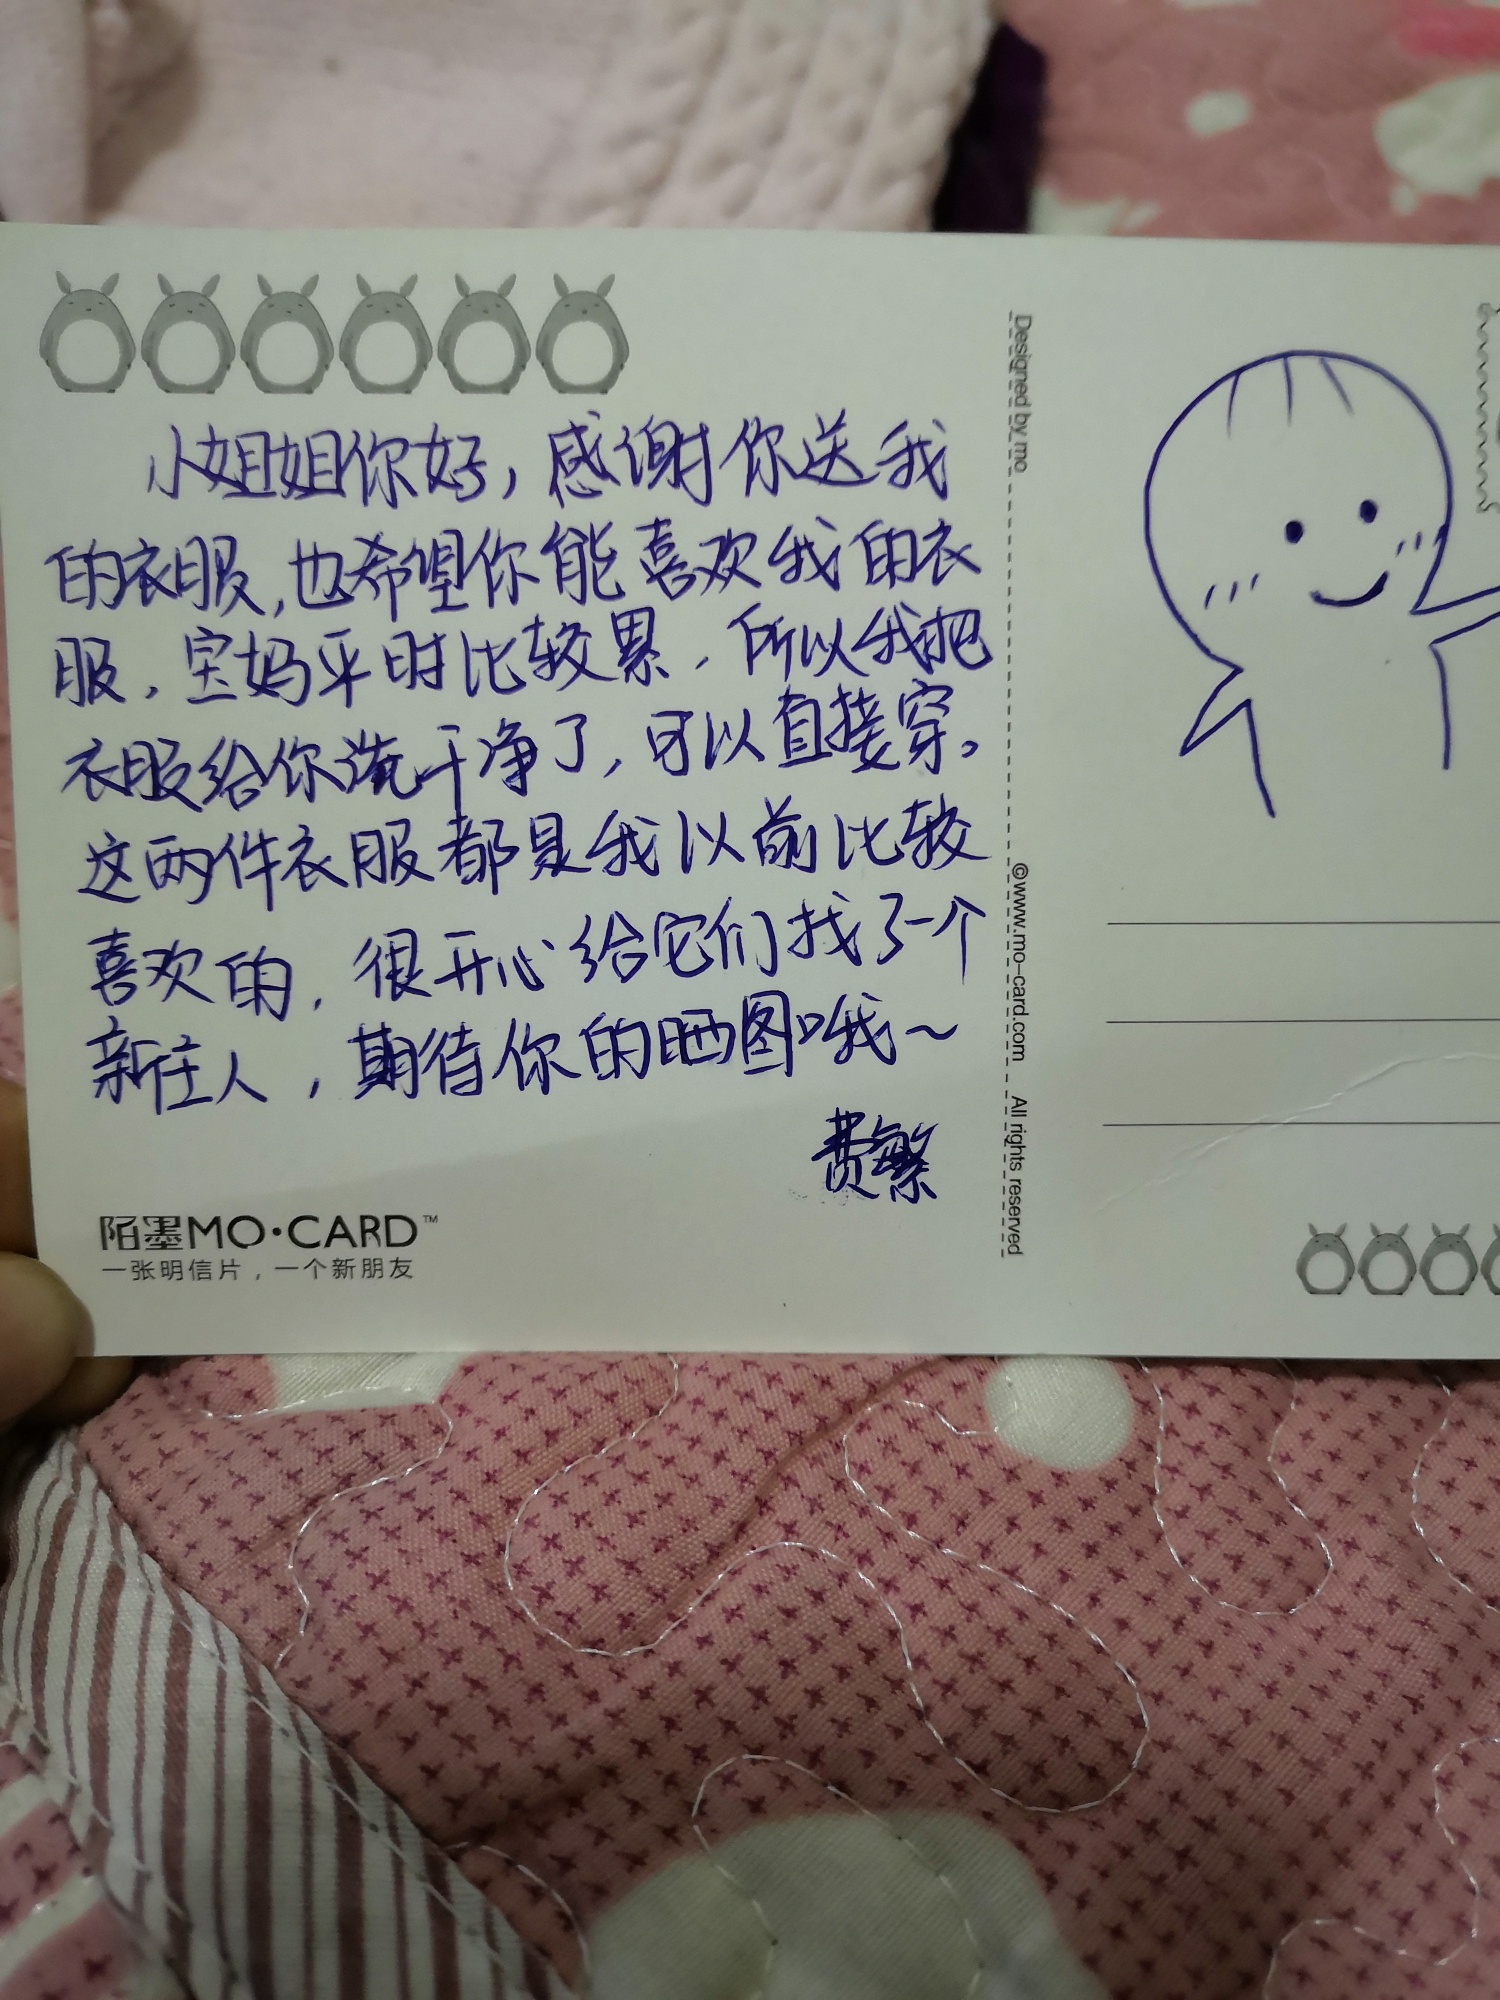 小姐姐你好，感谢你送我
的衣服，也希望你能喜欢我的衣
服，宝妈平时比较累，所以我把
衣服给你洗干净了，可以直接穿。
这两件衣服都是我以前比较
喜欢的，很开心给它们找了一个
新主人，期待你的晒图哦～
费繁
陌墨MO·CARD™
一张明信片，一个新朋友
Designed by mo
©www.mo-card.com All rights reserved